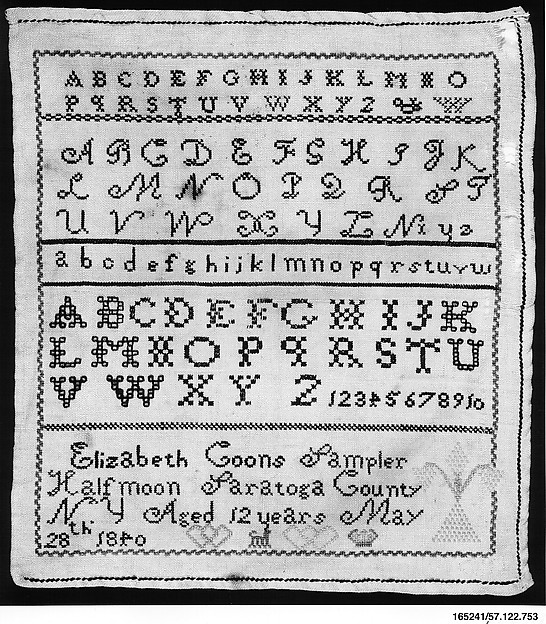 A B C D E F G H I J K L M N O
P Q R S T U V W X Y Z
A B C D E F S H I J K
L M N O P Q R S T
U V W X Y Z N i y z
a b c d e f g h i j k l m n o p q r s t u v w
A B C D E F G H I J K
L M N O P Q R S T U
V W X Y Z 1 2 3 4 5 6 7 8 9 10
Elizabeth Coons Sampler
Halfmoon Saratoga County
N Y Aged 12 years May
28th 1840
165241/57.122.753